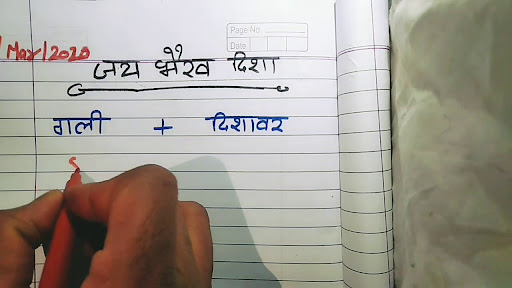 Page No
Date
/Mar/2020
जय भैरव दिशा
गली + दिशावर